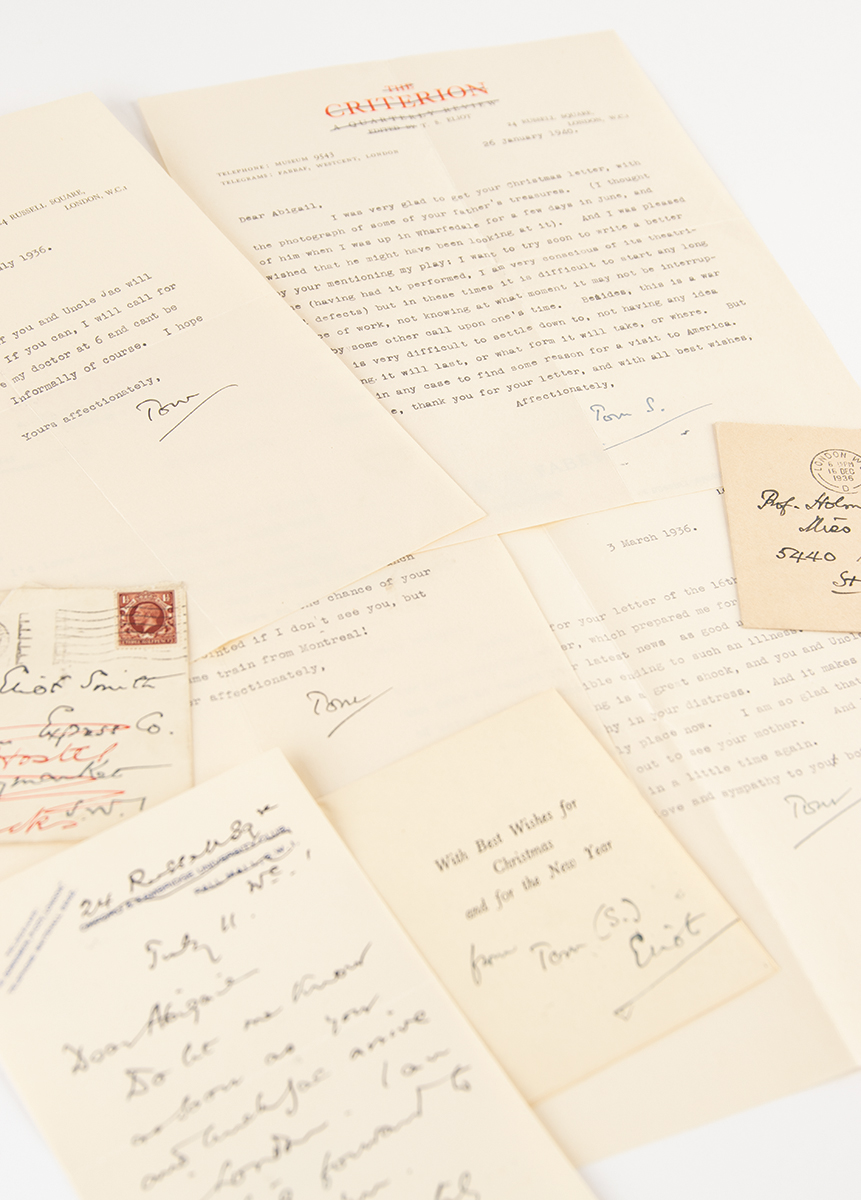 THE
CRITERION
A QUARTERLY REVIEW
EDITED BY T. S. ELIOT
24 RUSSELL SQUARE,
LONDON, W.C.1
TELEPHONE: MUSEUM 9543
TELEGRAMS: FABBAF, WESTCENT, LONDON
26 January 1940.
Dear Abigail,
I was very glad to get your Christmas letter, with
the photograph of some of your father's treasures. (I thought
of him when I was up in Wharfedale for a few days in June, and
wished that he might have been looking at it). And I was pleased
y your mentioning my play: I want to try soon to write a better
e (having had it performed, I am very conscious of its theatri-
defects) but in these times it is difficult to start any long
ce of work, not knowing at what moment it may not be interrup-
by some other call upon one's time. Besides, this is a war
is very difficult to settle down to, not having any idea
ng it will last, or what form it will take, or where. But
in any case to find some reason for a visit to America.
e, thank you for your letter, and with all best wishes,
Affectionately,
Tom S.
4 RUSSELL SQUARE,
LONDON, W.C.1
ly 1936.
f you and Uncle Jac will
If you can, I will call for
e my doctor at 6 and cant be
Informally of course. I hope
Yours affectionately,
Tom
LONDON W
6 PM
16 DEC
1936
Prof. Holm
Miss
5440
St
3 March 1936.
for your letter of the 16th
er, which prepared me for
r latest news as good n
ible ending to such an illness.
ng is a great shock, and you and Uncle
hy in your distress. And it makes
ly place now. I am so glad that
out to see your mother. And
in a little time again.
ove and sympathy to you bo
Tom
he chance of your
ointed if I don't see you, but
me train from Montreal!
r affectionately,
Tom
Eliot Smith
Express Co.
Hostel
ymarket
S.W.1
With Best Wishes for
Christmas
and for the New Year
from Tom (S.)
Eliot
24 Russell Sq
WC1
July 11.
Dear Abigail
Do let me know
as soon as you
and Uncle Jac arrive
London. I am
forward to